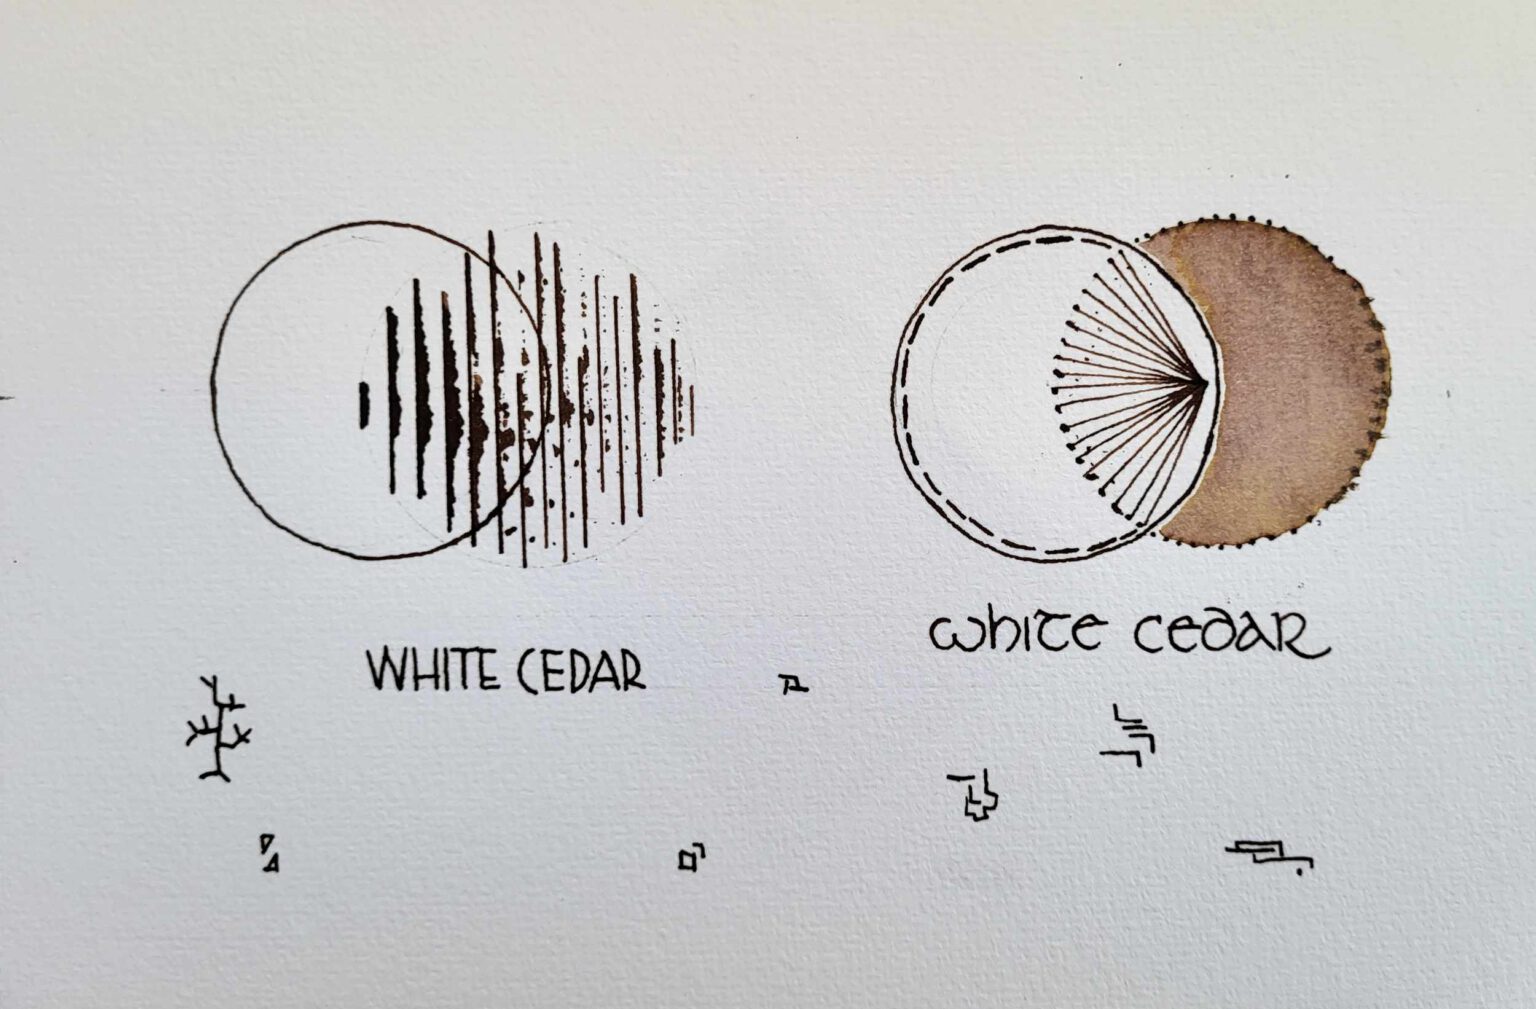 WHITE CEDAR
white cedar